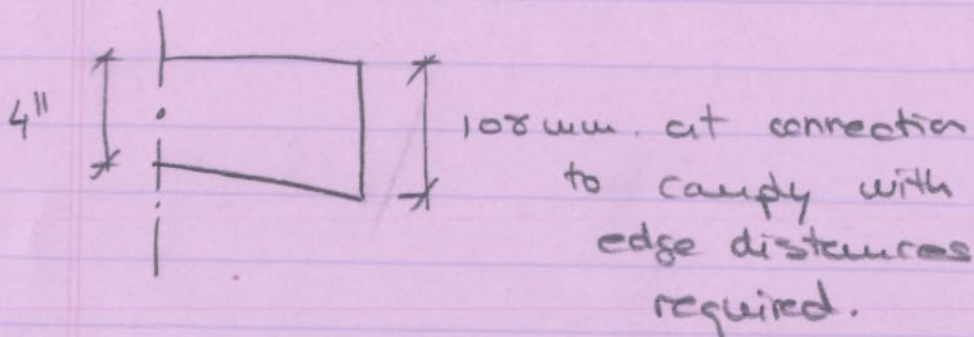 4"
108 mm. at connection
to comply with
edge distances
required.